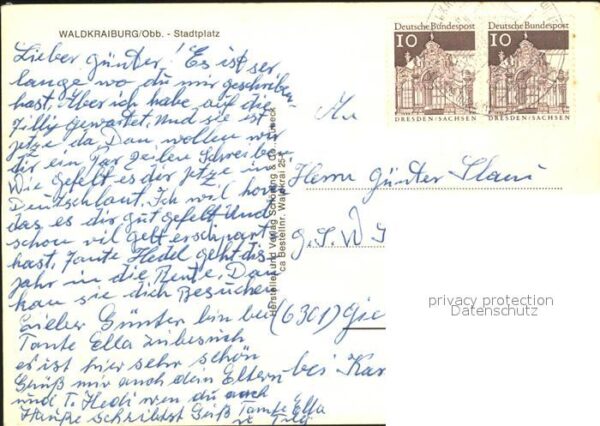 WALDKRAIBURG/Obb. - Stadtplatz
Lieber Günter! Es ist ser
lange wo du mir geschriben
hast. Aber ich habe auf die
Tilly gewartet. Und sie ist
jetze da. Dan wollen wir
dir ein par zeilen Schreiben
Wie gefelt es dir jetze in
Deutschlant. Ich wil hofen
das es dir gut gefelt Und
schon vil gelt erschpart
hast. Tante Hedel geht dis
jahr in die Rente. Dan
kan sie dich Besuchen
Lieber Günter bin bei
Tante Ella zubesuch
es ist hier sehr schön
Grüß mir auch dein Eltern
und T. Hedi wen du nach
Hauße schreibst Grüß Tante Ella
Deutsche Bundespost
10
DRESDEN/SACHSEN
Deutsche Bundespost
10
DRESDEN/SACHSEN
An
Herrn Günter
G.S.W
(6301) Gie
bei Kar
Hersteller und Verlag Schöning & Co. Lübeck
Bestellnr. Waldkrai
privacy protection
Datenschutz